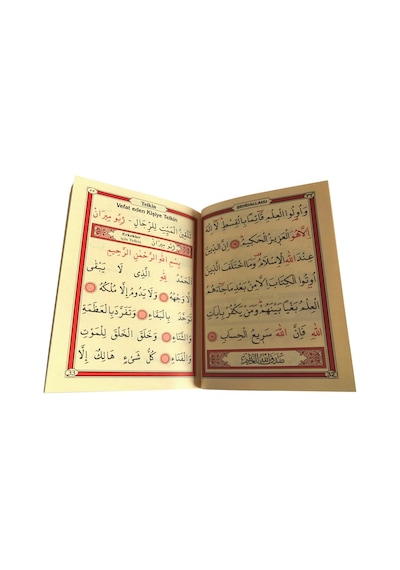 ŞEHİDALLAHU
وَاُولُوا الْعِلْمِ قَائِمًا بِالْقِسْطِ لَا اِلٰهَ
اِلَّا هُوَ الْعَزِيزُ الْحَكِيمُ اِنَّ الدِّينَ
عِنْدَ اللّٰهِ الْاِسْلَامُ وَمَا اخْتَلَفَ الَّذِينَ
اُوتُوا الْكِتَابَ اِلَّا مِنْ بَعْدِ مَا جَاءَهُمُ
الْعِلْمُ بَغْيًا بَيْنَهُمْ وَمَنْ يَكْفُرْ بِاٰيَاتِ
اللّٰهِ فَاِنَّ اللّٰهَ سَرِيعُ الْحِسَابِ
صَدَقَ اللّٰهُ الْعَظِيمُ
Telkin
Vefat eden Kişiye Telkin
تَلْقِينُ الْمَيِّتِ لِلرِّجَالِ -
Erkekler için Telkin
بِسْمِ اللّٰهِ الرَّحْمٰنِ الرَّحِيمِ
اَلْحَمْدُ لِلّٰهِ الَّذِى لَا يَبْقٰى
اِلَّا وَجْهُهُ وَلَا يَدُومُ اِلَّا مُلْكُهُ
تَوَحَّدَ بِالْبَقَاءِ وَتَفَرَّدَ بِالْعَظَمَةِ
وَالثَّنَاءِ وَخَلَقَ الْخَلْقَ لِلْمَوْتِ
وَالْفَنَاءِ كُلُّ شَىْءٍ هَالِكٌ اِلَّا